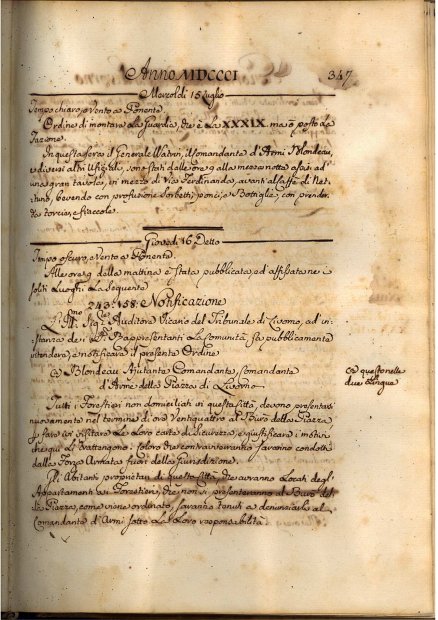 Anno MDCCCI
347
Mercoldì 15 Luglio
Tempo chiaro, e Vento a Ponente.
Ordine di montare la Guardia, che è la XXXIX. ma õ posto la
Fazione.
In questa sera il Generale Watrin, il Comandante d'Armi Blondeau,
e diversi altri Ufiziali, sono stati dalle ore 9 alla mezza notta assisi ad
una gran tavola, in mezzo di Via Ferdinanda, avant' al Caffè di Net-
tuno, bevendo con profusione Sorbetti, ponci, e Bottiglie, con
torcie, e fiaccole.
Giovedì 16 Detto
Tempo oscuro, e Vento a Ponente.
Alle ore 9 della mattina è stata pubblicata, ed affissata nei
soliti Luoghi la sequente
243. 158. Notificazione
L'Ill.mo Sig.re Auditore Vicario del Tribunale di Livorno, ad in-
stanza dei Rappresentanti la Comunità fa pubblicamente
intendere, e notificare il presente Ordine
Blondeau Ajutante Comandante, Comandante
d'Arme della Piazza di Livorno
Tutti i Forestieri non domiciliati in questa Città, devono presentarsi
nuovamente nel termine di ore Ventiquattro al Buro della Piazza
a farvi visitare le loro carte di Sicurezza, e giustificare i motivi
che qui li trattengono: coloro che contravverranno saranno condotti
dalla Forza Armata fuori della Giurisdizione.
Gli Abitanti proprietari di questa Città, che avranno Locati degl'
Appartamenti ai Forestieri, che non si presenteranno al Buro del-
la Piazza, come viene ordinato, saranno tenuti a denunziarli al
Comandante d'Armi sotto la loro responsabilità.
e questo nelle
due Lingue